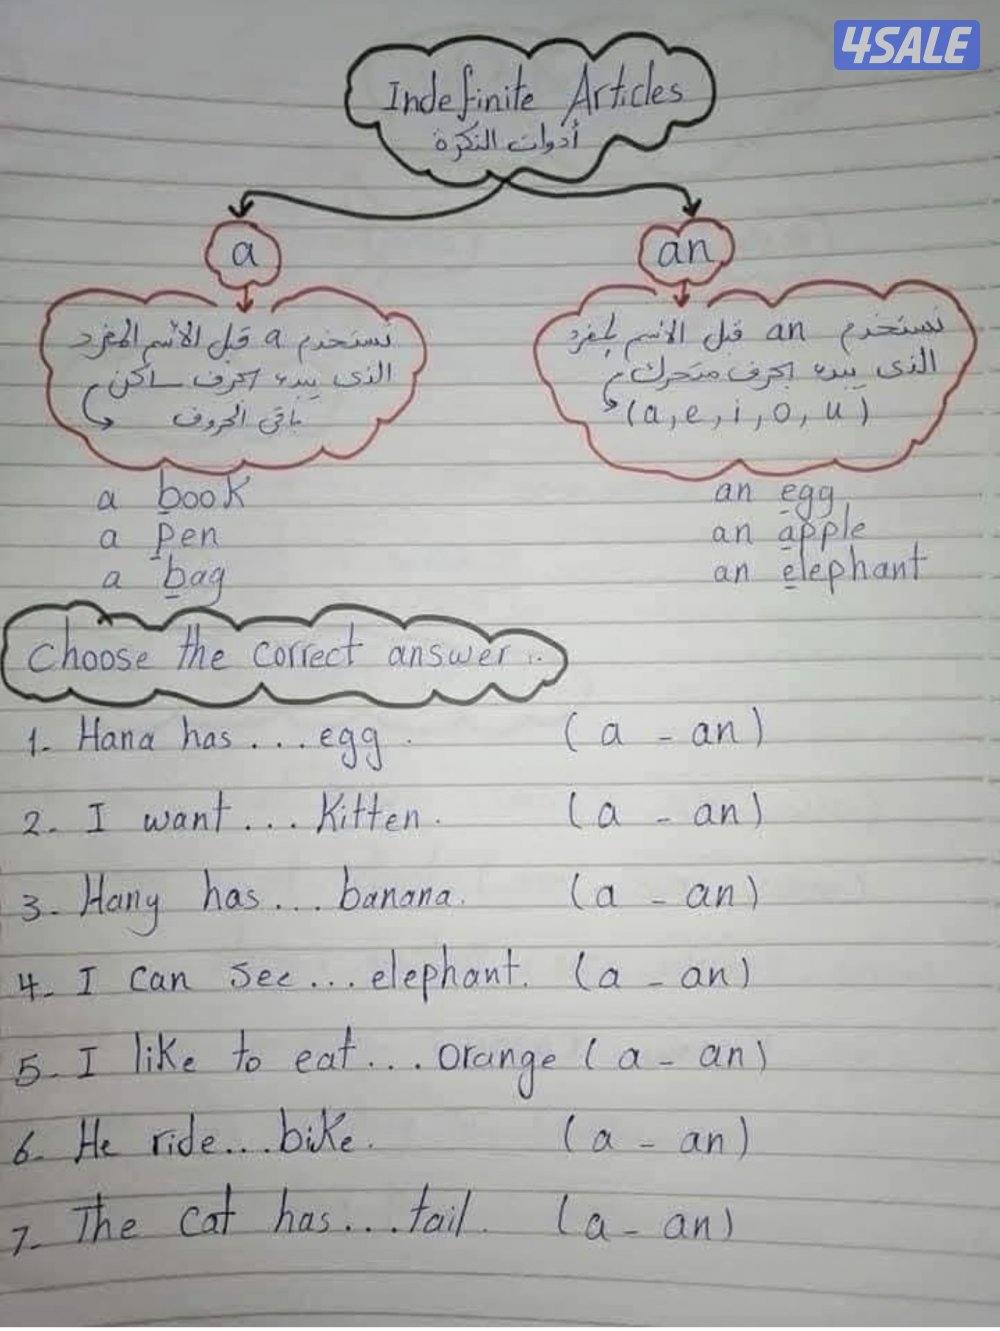 4SALE
Indefinite Articles
أدوات النكرة
a
an
نستخدم a قبل الأسم المفرد
الذى يبدء بحرف ساكن
باقى الحروف
نستخدم an قبل الاسم المفرد
الذى يبدء بحرف متحرك
(a, e, i, o, u)
a book
a pen
a bag
an egg
an apple
an elephant
Choose the correct answer :.
1- Hana has ... egg. (a - an)
2- I want ... Kitten. (a - an)
3- Hany has ... banana. (a - an)
4- I can see ... elephant. (a - an)
5- I like to eat ... orange (a - an)
6- He ride ... bike. (a - an)
7- The cat has ... tail. (a - an)